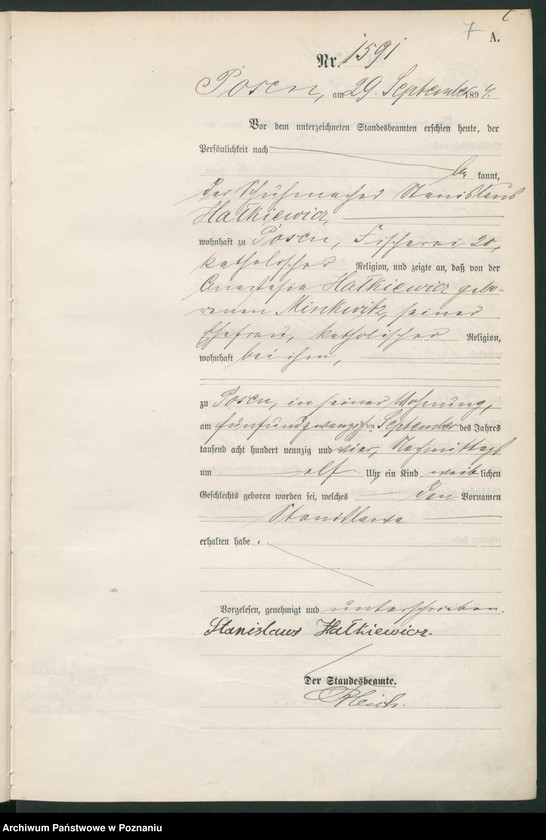 7
A.
Nr. 1591
Posen, am 29. September 1894.
Vor dem unterzeichneten Standesbeamten erschien heute, der
Persönlichkeit nach
be kannt,
der Schuhmacher Stanislaus
Hałkiewicz,
wohnhaft zu Posen, Fischerei 20,
katholischer Religion, und zeigte an, daß von der
Anastasia Hałkiewicz gebo-
renen Minkwitz, seiner
Ehefrau, katholischer Religion,
wohnhaft bei ihm,
zu Posen, in seiner Wohnung,
am fünfundzwanzigsten September des Jahres
tausend acht hundert neunzig und vier, Nachmittags
um elf Uhr ein Kind weiblichen
Geschlechts geboren worden sei, welches den Vornamen
Stanislawa
erhalten habe.
Vorgelesen, genehmigt und unterschrieben.
Stanislaus Hałkiewicz.
Der Standesbeamte.
Archiwum Państwowe w Poznaniu